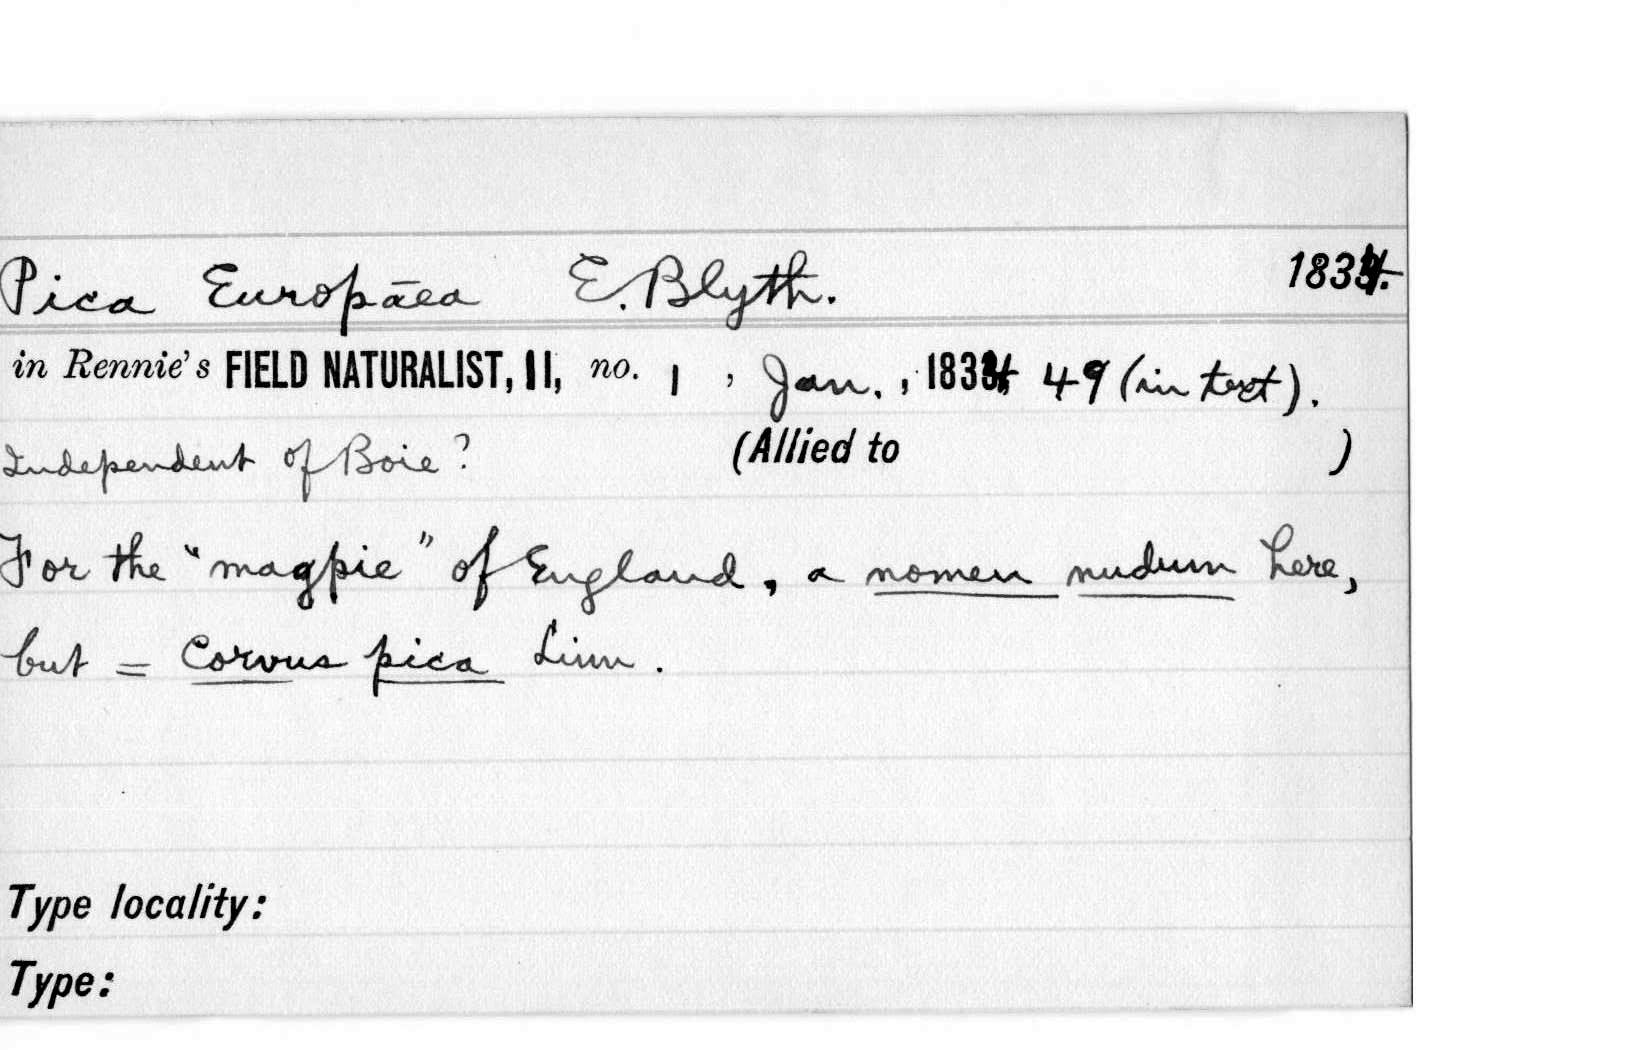 Pica Europāea E. Blyth. 1834.
in Rennie's FIELD NATURALIST, II, no. 1, Jan., 1834 49 (in text).
Independent of Boie? (Allied to )
For the "magpie" of England, a nomen nudum here,
but = Corvus pica Linn.
Type locality:
Type: